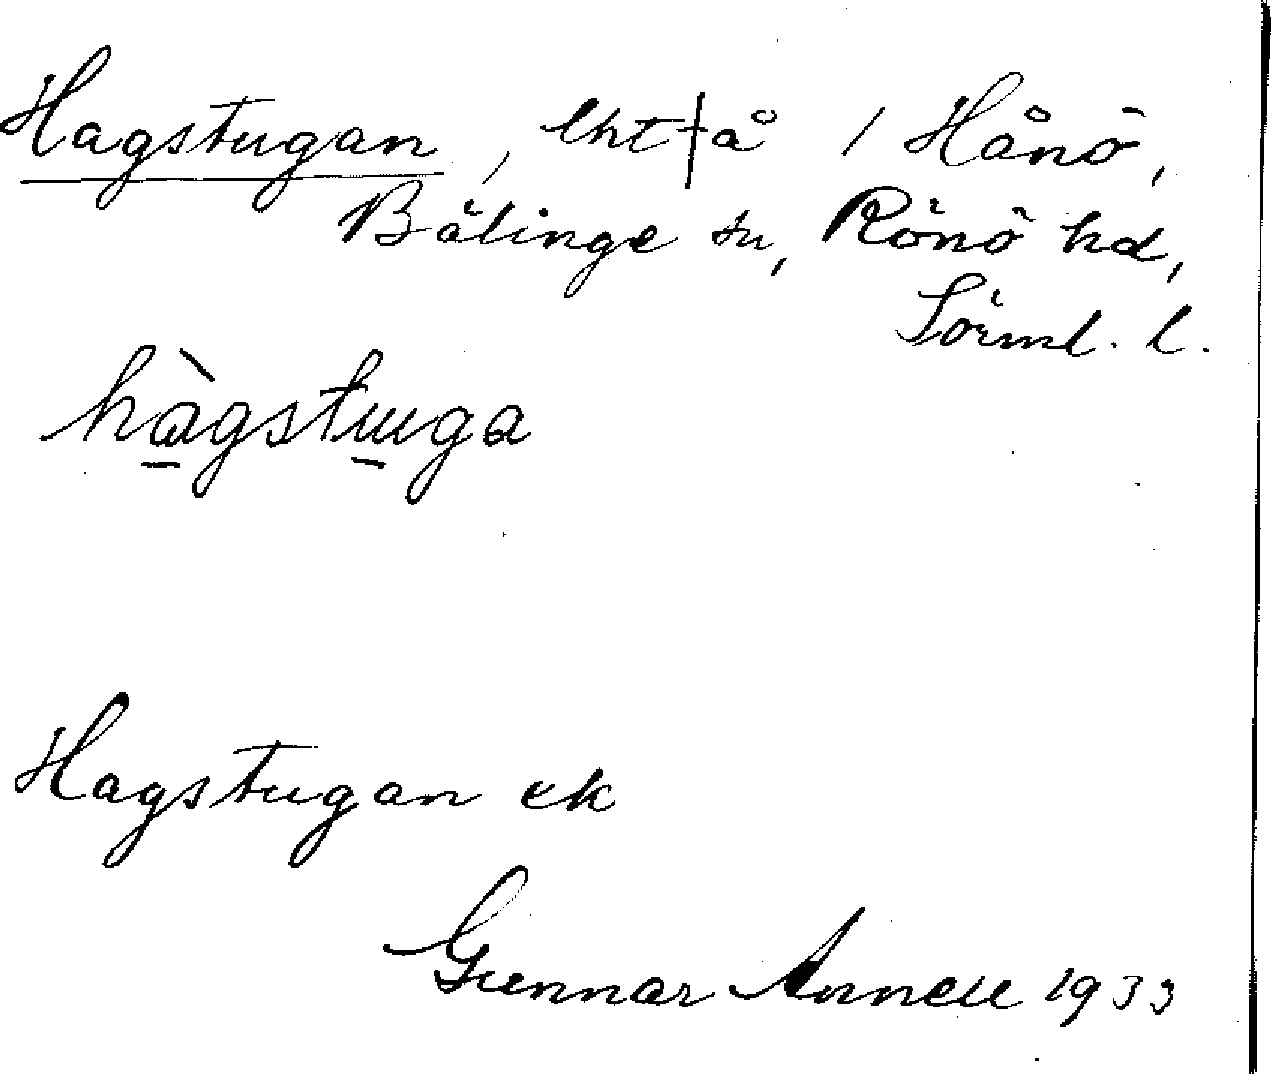 Hagstugan, lht † å 1 Hånö,
Bälinge sn, Rönö hd,
Sörml. l.
hàgstuga
Hagstugan ek
Gunnar Annell 1933